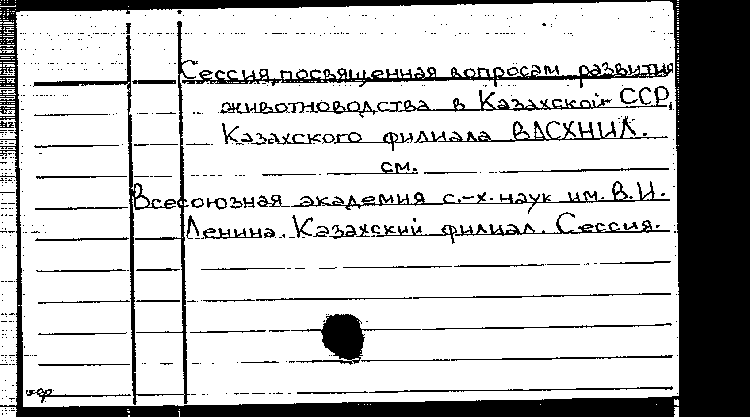 Сессия, посвященная вопросам развития
животноводства в Казахской ССР,
Казахского филиала ВАСХНИЛ.
см.
Всесоюзная академия с.-х. наук им. В.И.
Ленина. Казахский филиал. Сессия.